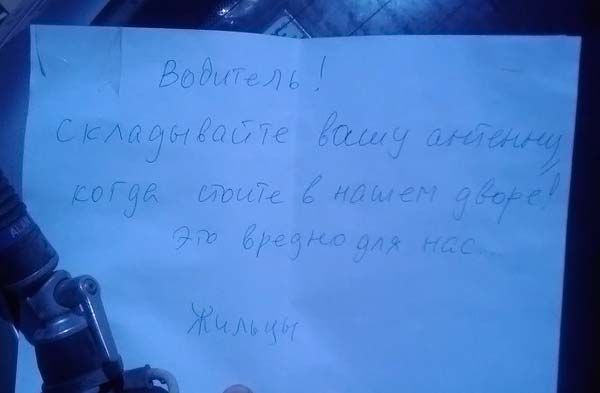 Водитель!
Складывайте вашу антенну,
когда стоите в нашем дворе!
Это вредно для нас...
Жильцы